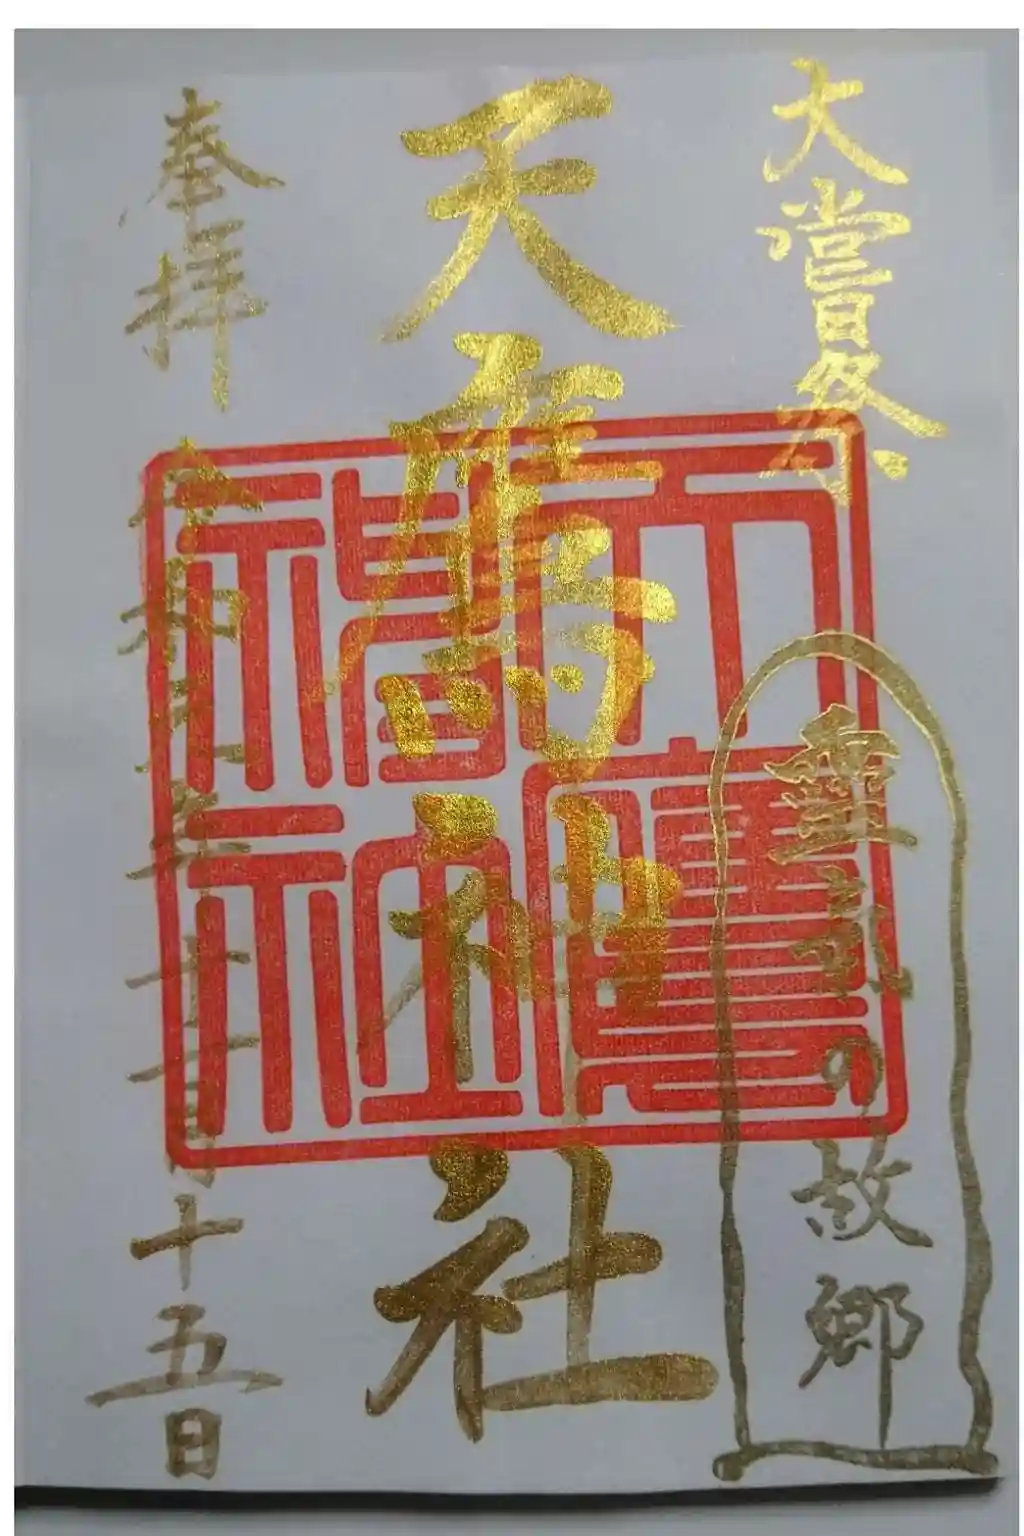 大嘗祭
霊氣の故郷
天鷹神社
天鷹神社
奉拝 令和元年十一月十五日